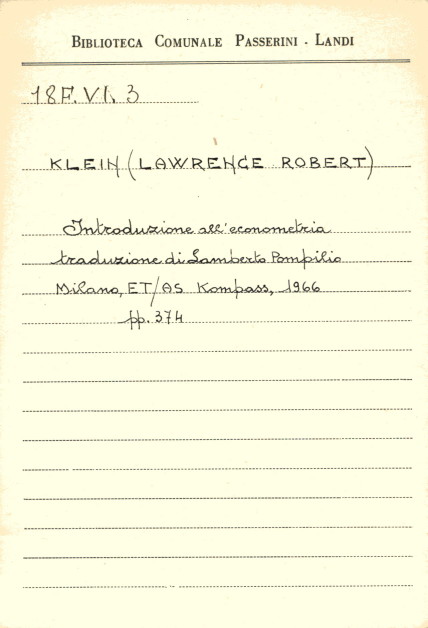 BIBLIOTECA COMUNALE PASSERINI - LANDI
18F.VI.3
KLEIN (LAWRENCE ROBERT)
Introduzione all'econometria
traduzione di Lamberto Pompilio
Milano, ET/AS Kompass, 1966
pp. 374